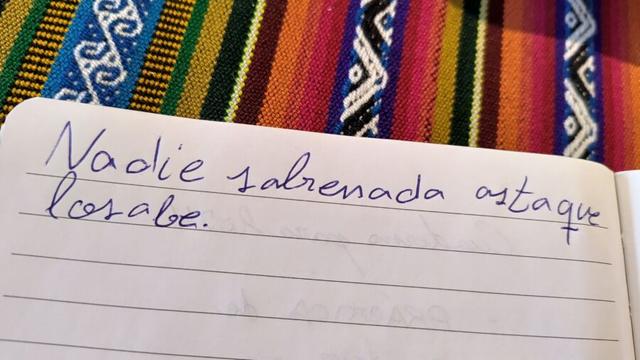 Nadie sabrenada astaque
losabe.